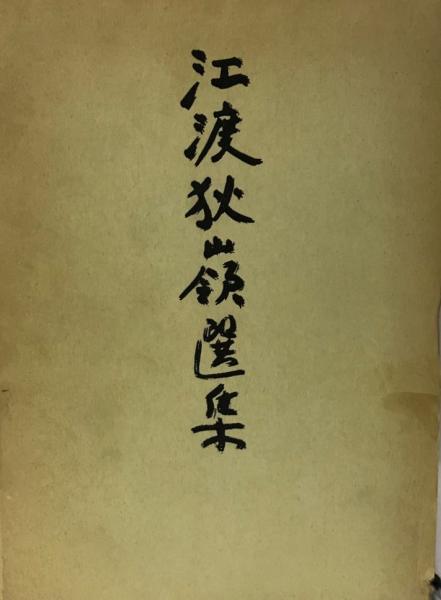 江渡狄嶺選集